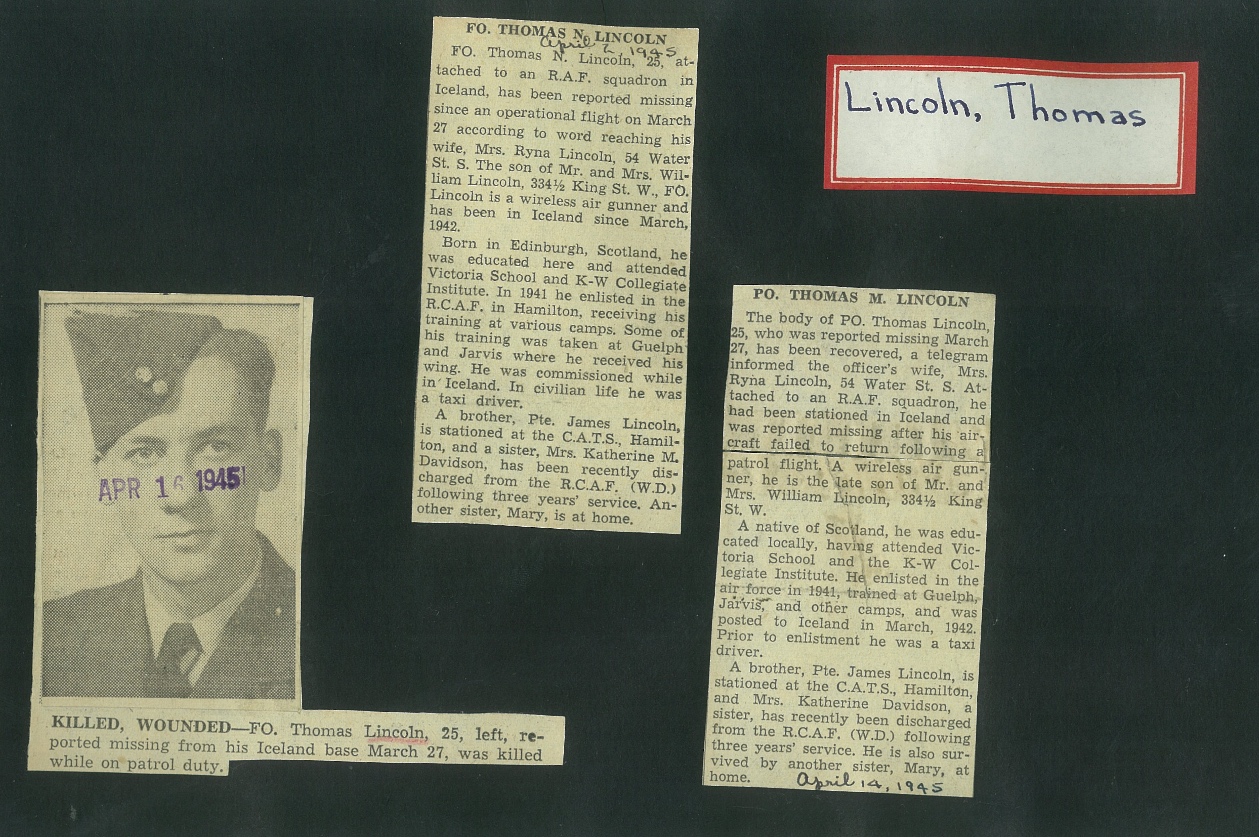 FO. THOMAS N. LINCOLN
April 2, 1945
FO. Thomas N. Lincoln, 25, at-
tached to an R.A.F. squadron in
Iceland, has been reported missing
since an operational flight on March
27 according to word reaching his
wife, Mrs. Ryna Lincoln, 54 Water
St. S. The son of Mr. and Mrs. Wil-
liam Lincoln, 334½ King St. W., FO.
Lincoln is a wireless air gunner and
has been in Iceland since March,
1942.
Born in Edinburgh, Scotland, he
was educated here and attended
Victoria School and K-W Collegiate
Institute. In 1941 he enlisted in the
R.C.A.F. in Hamilton, receiving his
training at various camps. Some of
his training was taken at Guelph
and Jarvis where he received his
wing. He was commissioned while
in Iceland. In civilian life he was
a taxi driver.
A brother, Pte. James Lincoln,
is stationed at the C.A.T.S., Hamil-
ton, and a sister, Mrs. Katherine M.
Davidson, has been recently dis-
charged from the R.C.A.F. (W.D.)
following three years' service. An-
other sister, Mary, is at home.
Lincoln, Thomas
PO. THOMAS M. LINCOLN
The body of PO. Thomas Lincoln,
25, who was reported missing March
27, has been recovered, a telegram
informed the officer's wife, Mrs.
Ryna Lincoln, 54 Water St. S. At-
tached to an R.A.F. squadron, he
had been stationed in Iceland and
was reported missing after his air-
craft failed to return following a
patrol flight. A wireless air gun-
ner, he is the late son of Mr. and
Mrs. William Lincoln, 334½ King
St. W.
A native of Scotland, he was edu-
cated locally, having attended Vic-
toria School and the K-W Col-
legiate Institute. He enlisted in the
air force in 1941, trained at Guelph,
Jarvis, and other camps, and was
posted to Iceland in March, 1942.
Prior to enlistment he was a taxi
driver.
A brother, Pte. James Lincoln, is
stationed at the C.A.T.S., Hamilton,
and Mrs. Katherine Davidson, a
sister, has recently been discharged
from the R.C.A.F. (W.D.) following
three years' service. He is also sur-
vived by another sister, Mary, at
home.
April 14, 1945
APR 16 1945
KILLED, WOUNDED—FO. Thomas Lincoln, 25, left, re-
ported missing from his Iceland base March 27, was killed
while on patrol duty.